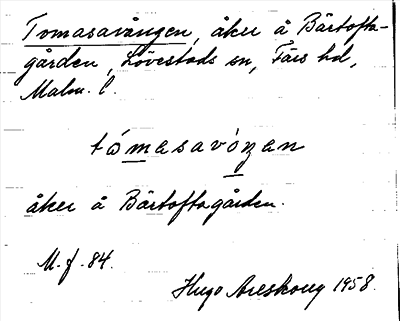 Tomasavången, åker å Bärtofta-
gården, Lövestads sn, Färs hd,
Malm. l.
tómasavóŋan
åker å Bärtoftagården.
M. f. 84.
Hugo Areskoug 1958.